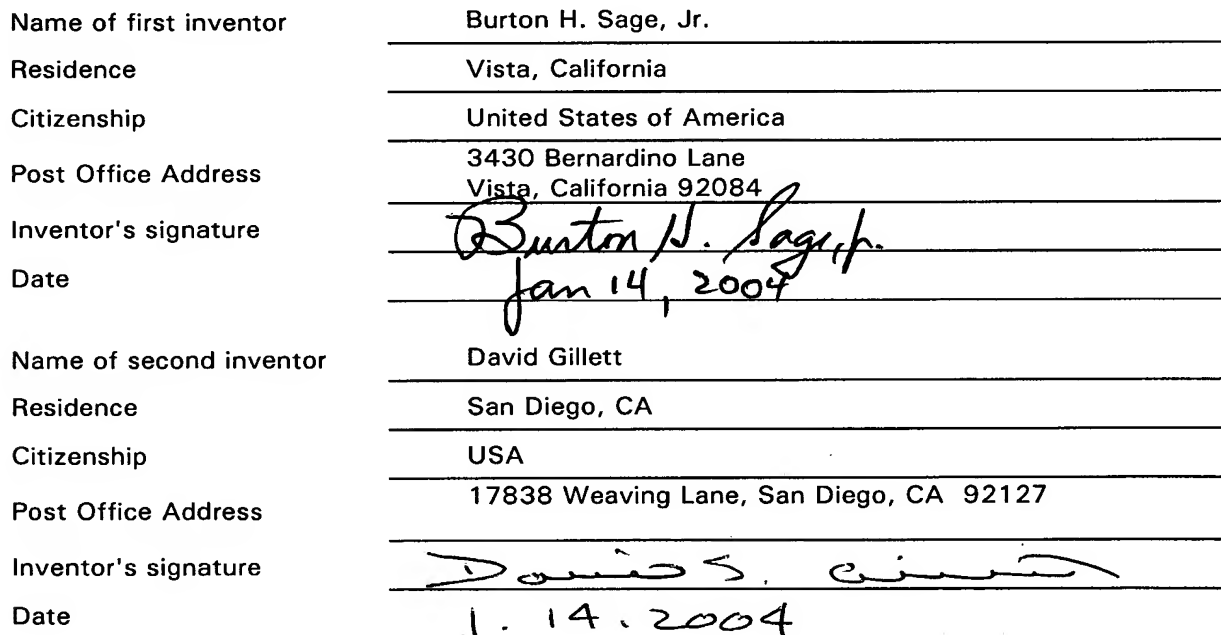 Name of first inventor Burton H. Sage, Jr.
Residence Vista, California
Citizenship United States of America
Post Office Address 3430 Bernardino Lane
Vista, California 92084
Inventor's signature Burton H. Sage, Jr.
Date Jan 14, 2004
Name of second inventor David Gillett
Residence San Diego, CA
Citizenship USA
Post Office Address 17838 Weaving Lane, San Diego, CA 92127
Inventor's signature David S.
Date 1.14.2004